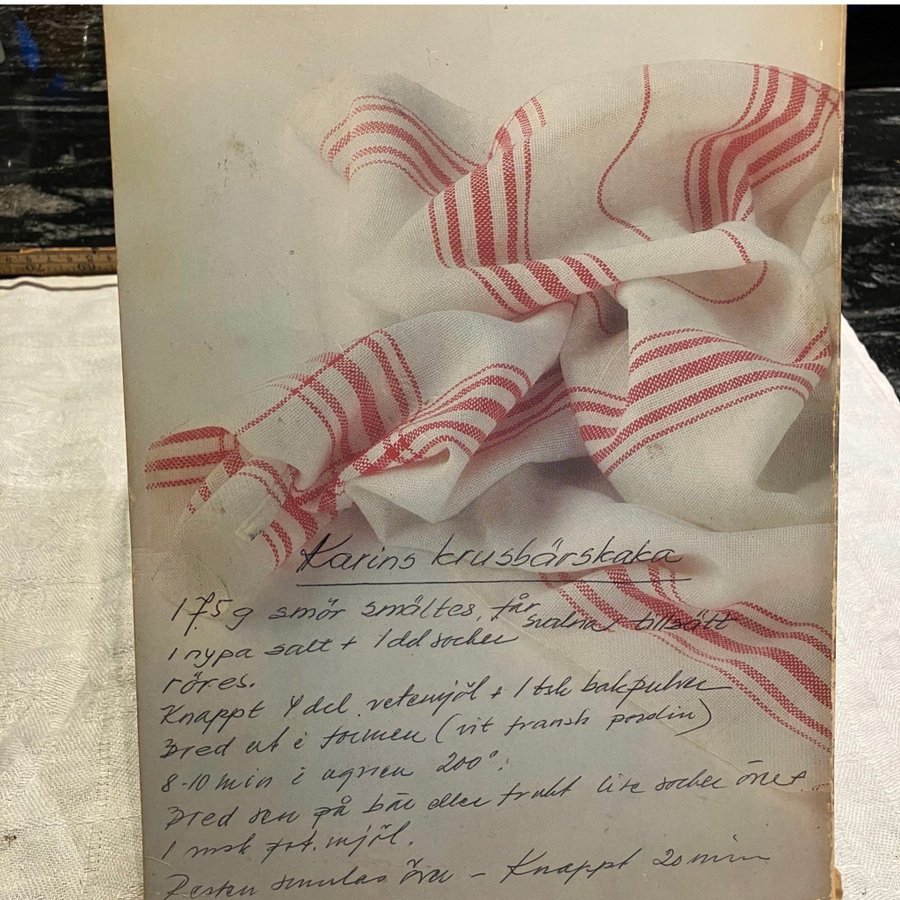 Karins krusbärskaka
175 g smör smältes, får svalna, tillsätt
1 nypa salt + 1 dl socker
röres.
Knappt 4 del. vetemjöl + 1 tsk bakpulver
Bred ut i formen (vit fransk porslin)
8-10 min i ugnen 200°.
Bred sen på bär eller frukt lite socker över +
1 msk pot.mjöl.
Resten smulas över - Knappt 20 min